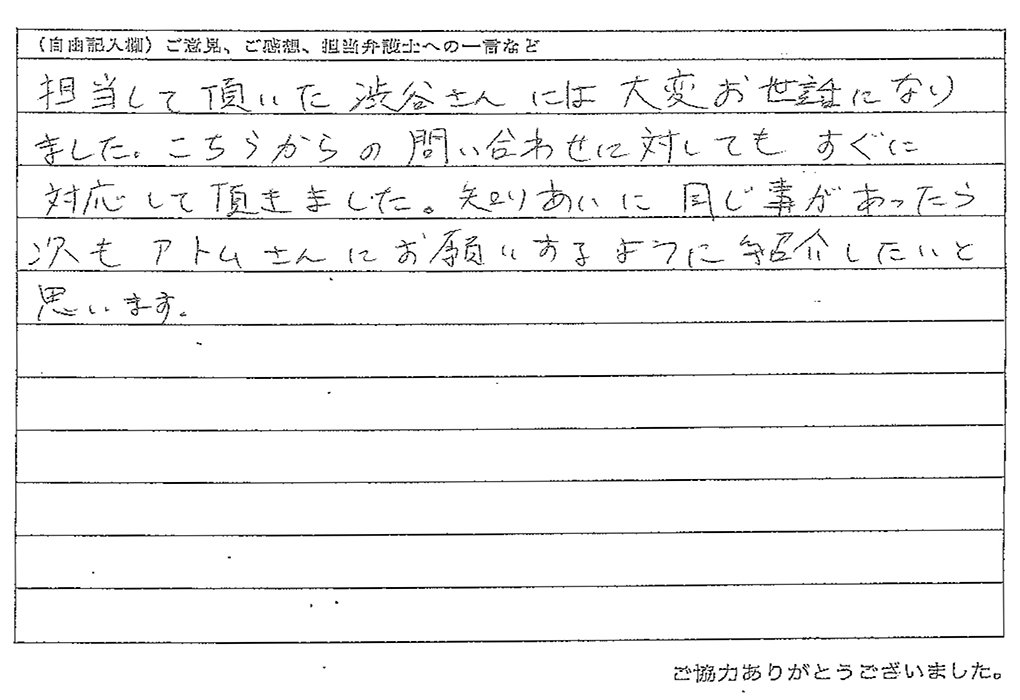 （自由記入欄）ご意見、ご感想、担当弁護士への一言など
担当して頂いた 渋谷さん には 大変お世話になり
ました。こちらからの 問い合わせに対しても すぐに
対応して頂きました。知りあいに 同じ事があったら
次も アトムさんにお願いするように 紹介したいと
思います。
ご協力ありがとうございました。